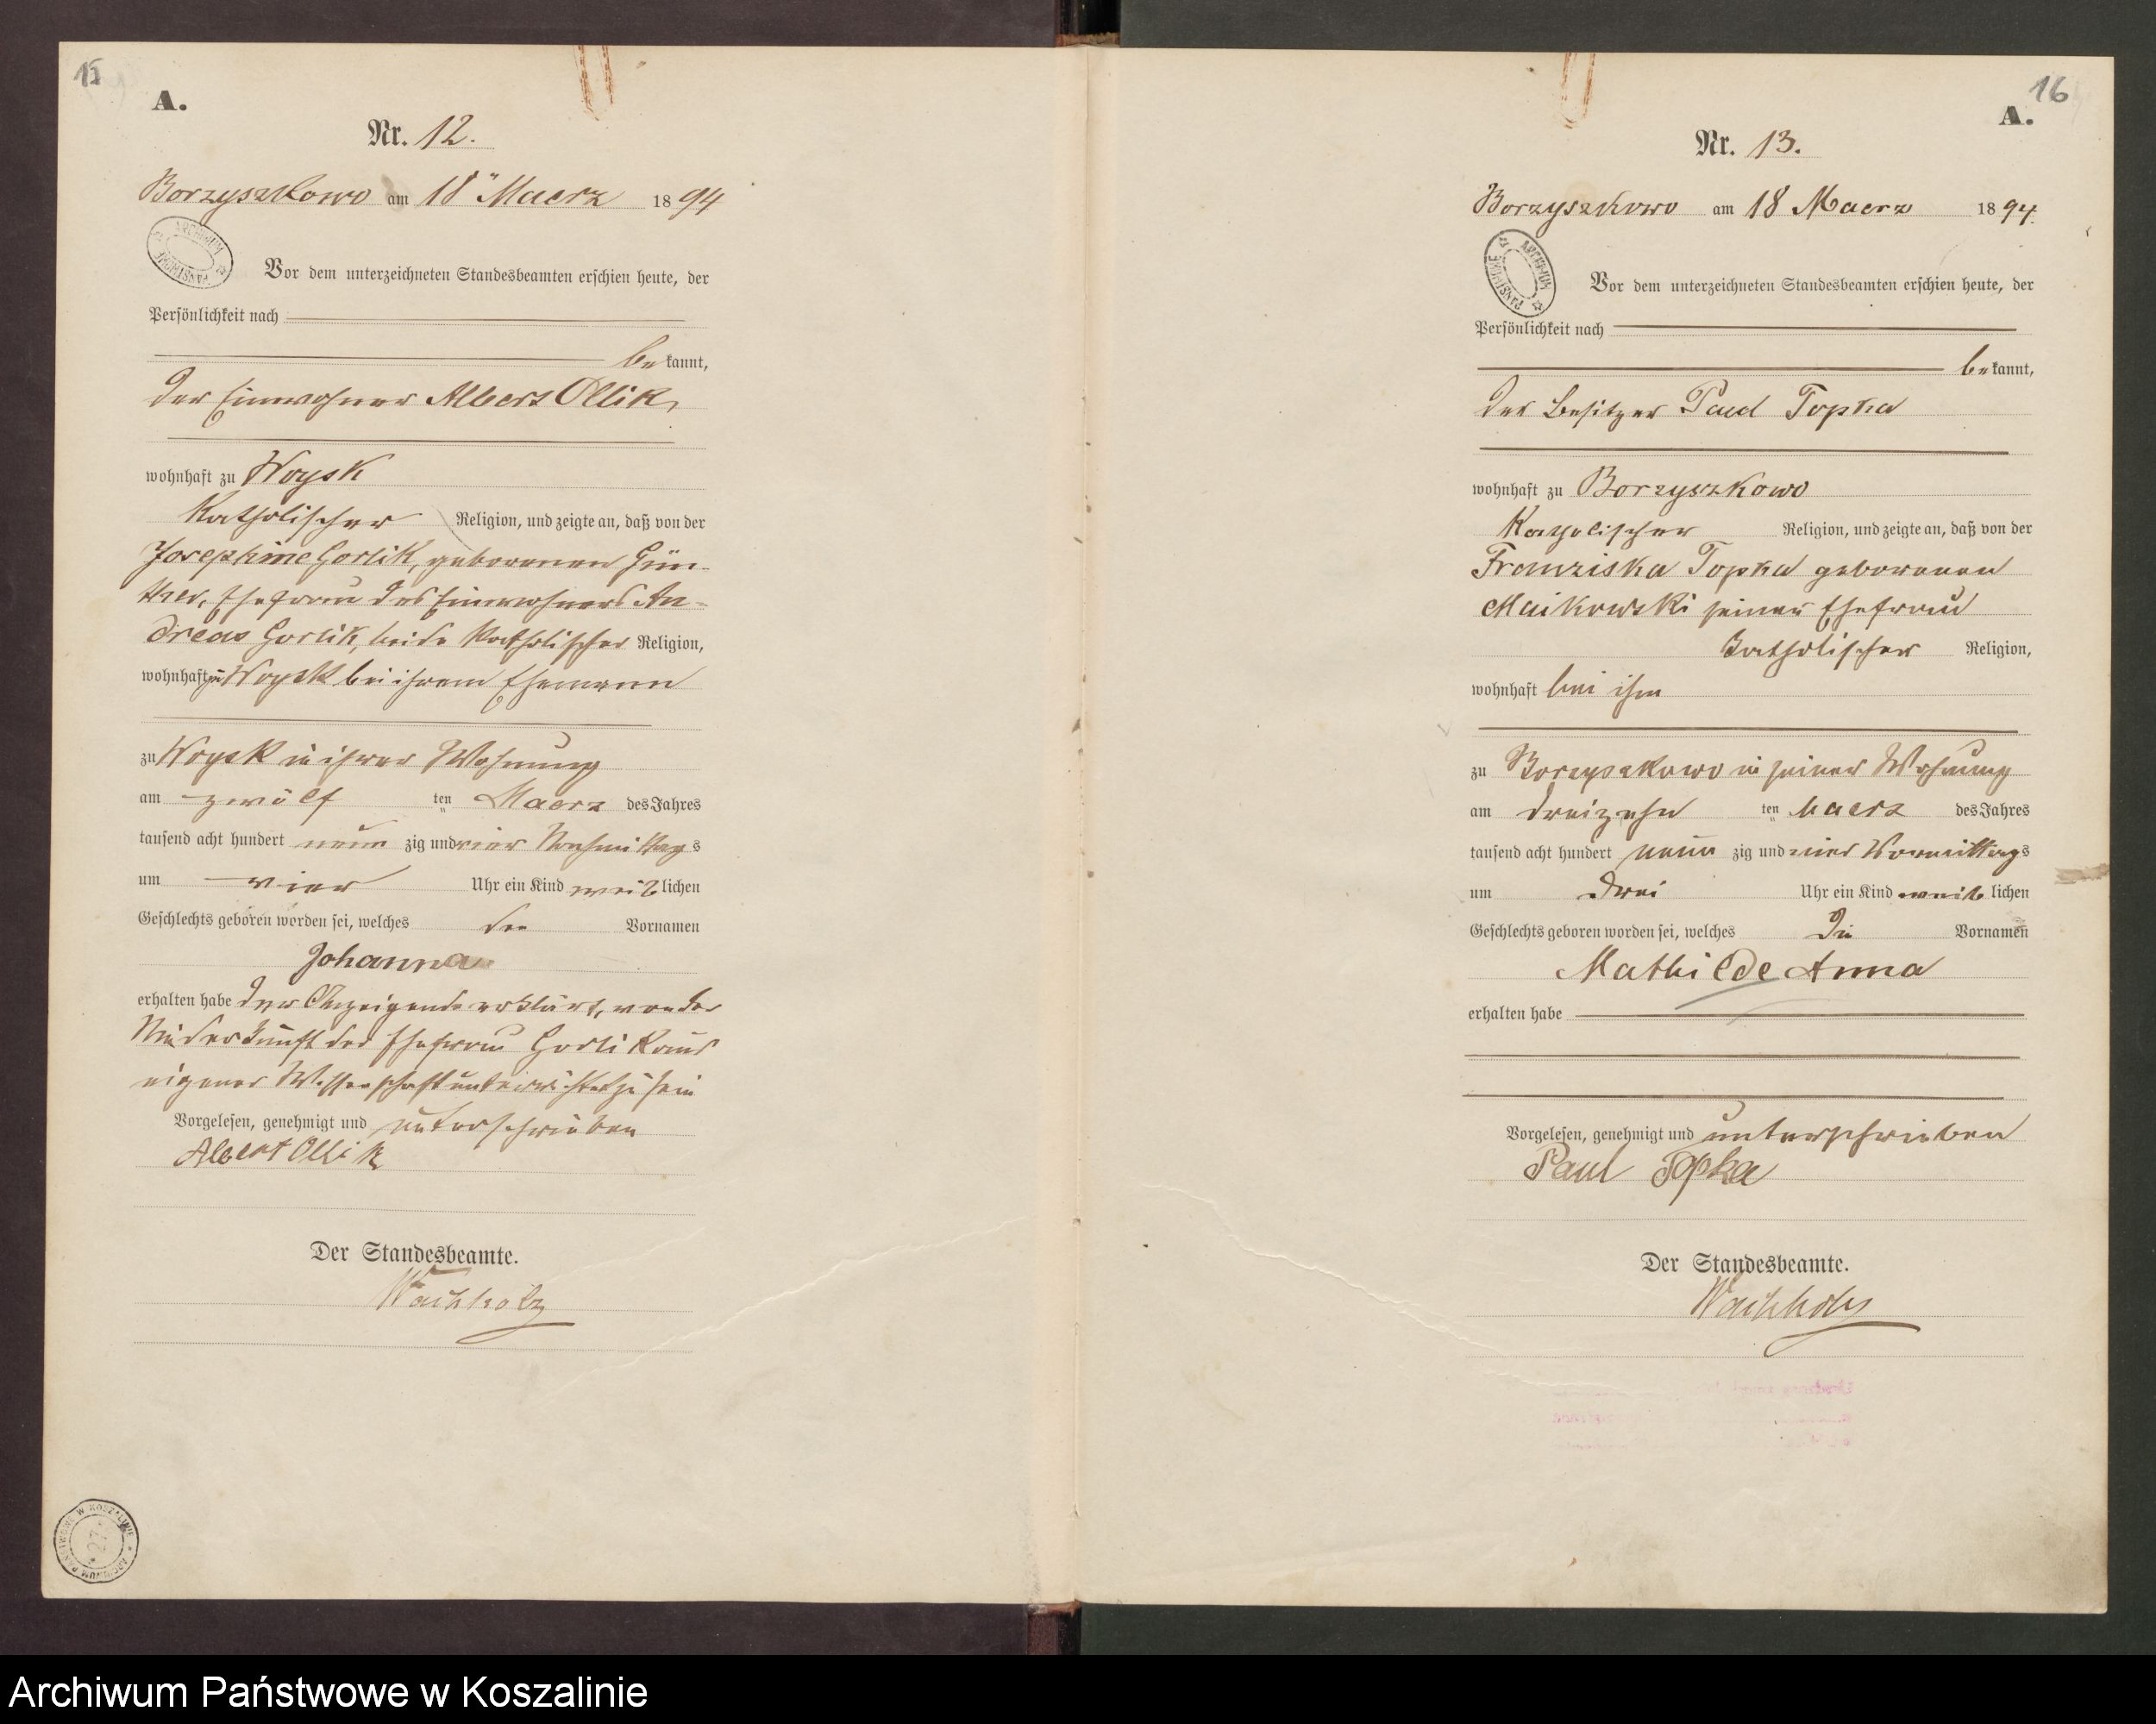 15
A.
Nr. 12.
Borzyszkowo am 18 Maerz 1894
ARCHIWUM PAŃSTWOWE
Vor dem unterzeichneten Standesbeamten erschien heute, der
Persönlichkeit nach
bekannt,
der Einwohner Albert Ollik,
wohnhaft zu Woysk
Katholischer Religion, und zeigte an, daß von der
Josephine Gorlik, geborenen Gün-
ther, Ehefrau des Einwohners An-
dreas Gorlik, beide katholischer Religion,
wohnhaft zu Woysk bei ihrem Ehemann
zu Woysk in ihrer Wohnung
am zwölf ten Maerz des Jahres
tausend acht hundert neun zig und vier Nachmittags
um vier Uhr ein Kind weiblichen
Geschlechts geboren worden sei, welches den Vornamen
Johanna
erhalten habe der Anzeigende erklärt, von der
Niederkunft der Ehefrau Gorlik aus
eigener Wissenschaft unterrichtet zu sein
Vorgelesen, genehmigt und unterschrieben
Albert Ollik
Der Standesbeamte.
Wachholz
ARCHIWUM PAŃSTWOWE W KOSZALINIE
27
16
A.
Nr. 13.
Borzyszkowo am 18 Maerz 1894.
ARCHIWUM PAŃSTWOWE
Vor dem unterzeichneten Standesbeamten erschien heute, der
Persönlichkeit nach
bekannt,
der Besitzer Paul Topka
wohnhaft zu Borzyszkowo
Katholischer Religion, und zeigte an, daß von der
Franziska Topka geborenen
Maikowski seiner Ehefrau
Katholischer Religion,
wohnhaft bei ihm
zu Borzyszkowo in seiner Wohnung
am dreizehn ten Maerz des Jahres
tausend acht hundert neun zig und vier Vormittags
um drei Uhr ein Kind weiblichen
Geschlechts geboren worden sei, welches die Vornamen
Mathilde Anna
erhalten habe
Vorgelesen, genehmigt und unterschrieben
Paul Topka
Der Standesbeamte.
Wachholz
Archiwum Państwowe w Koszalinie